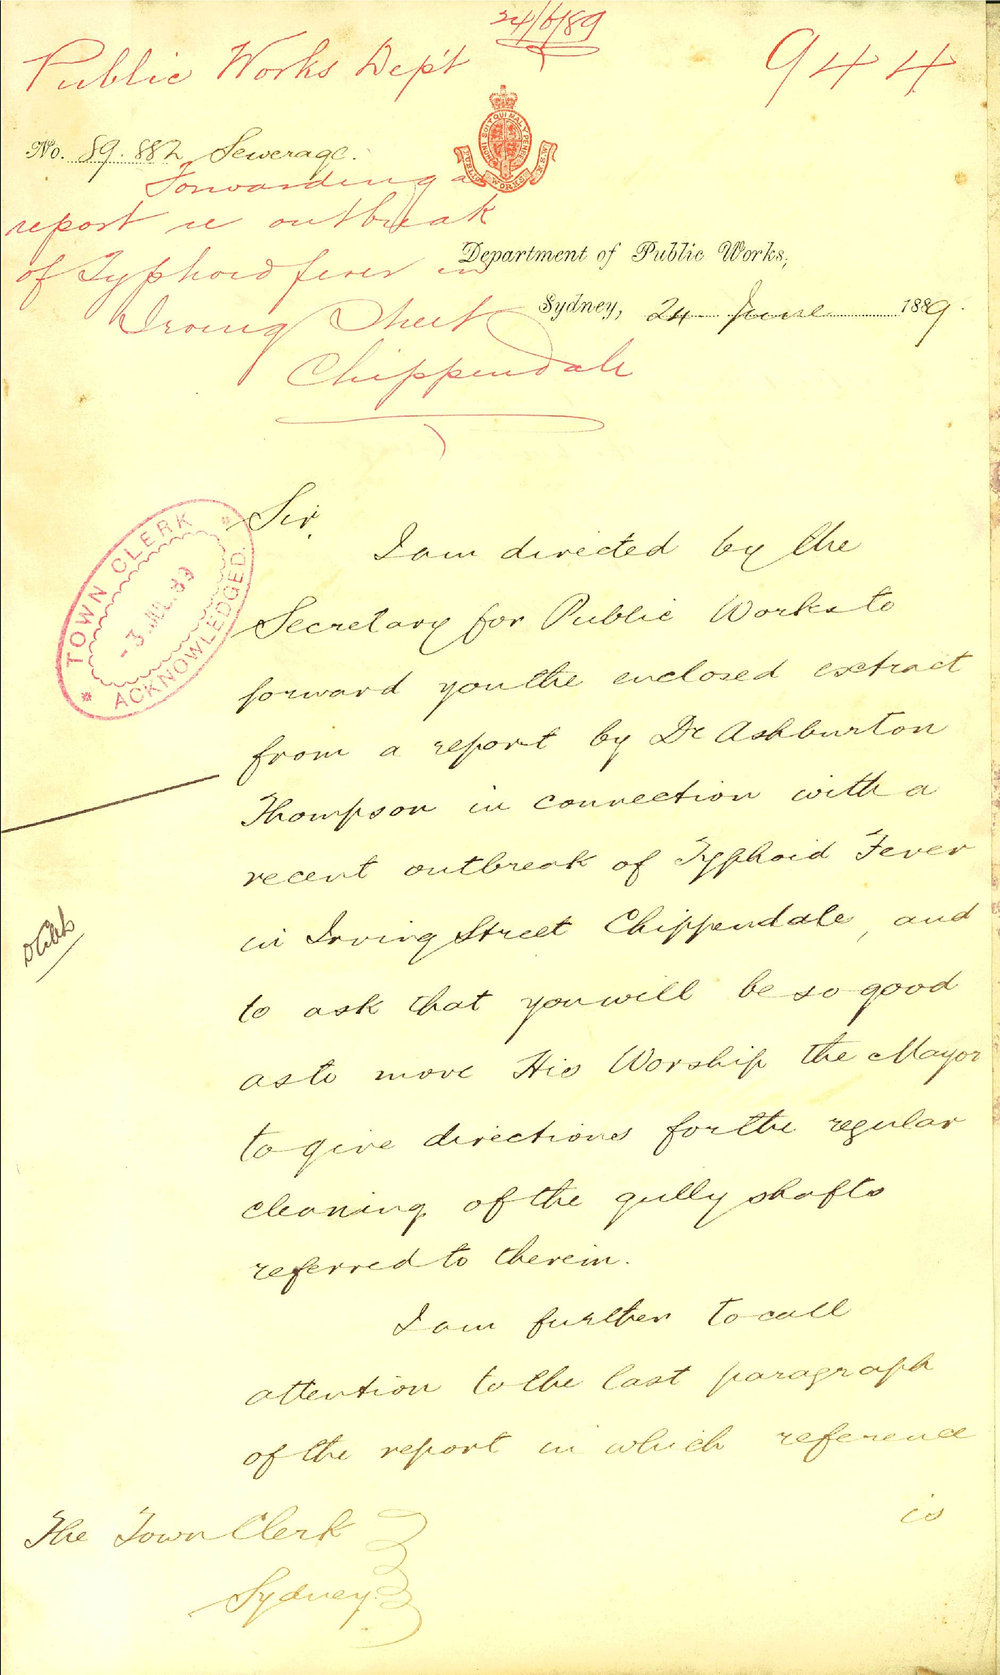 24/6/89
Public Works Dep't
944
No. 89.882 Sewerage.
Forwarding a
report re outbreak
of Typhoid fever in
Irving Street
Chippendale
PUBLIC WORKS N.S.W.
HONI SOIT QUI MAL Y PENSE
Department of Public Works,
Sydney, 24 June 1889.
TOWN CLERK
-3 JUL 89
ACKNOWLEDGED.
Sir,
I am directed by the
Secretary for Public Works to
forward you the enclosed extract
from a report by Dr Ashburton
Thompson in connection with a
recent outbreak of Typhoid Fever
in Irving Street Chippendale, and
to ask that you will be so good
as to move His Worship the Mayor
to give directions for the regular
cleaning of the gully shafts
referred to therein.
I am further to call
attention to the last paragraph
of the report in which reference
is
The Town Clerk
Sydney